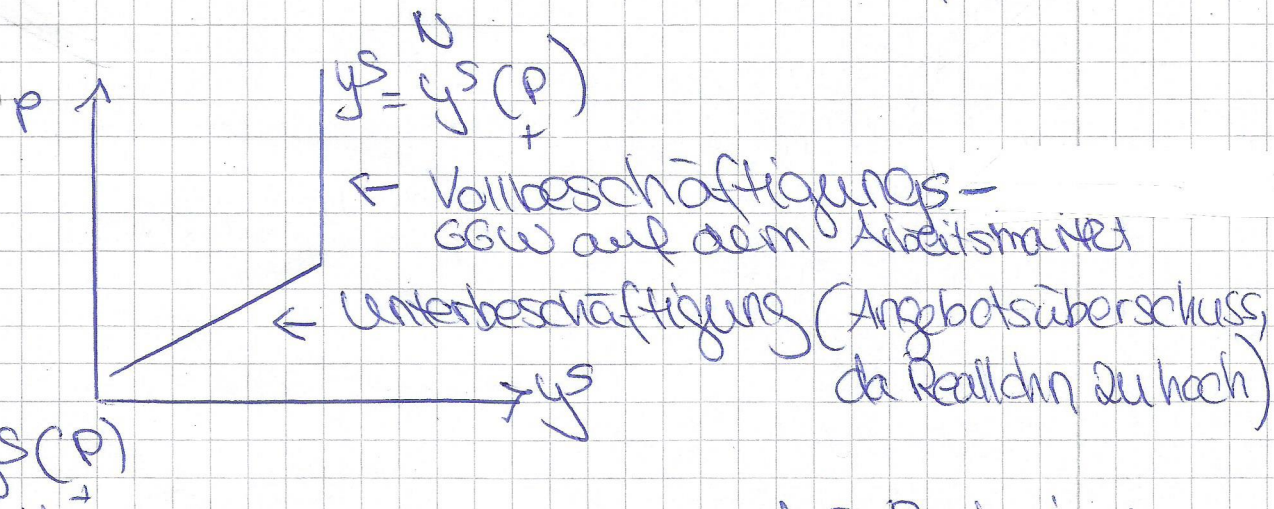 N
p
y^S = y^S (P)
+
← Vollbeschäftigungs-
GGW auf dem Arbeitsmarkt
← Unterbeschäftigung (Angebotsüberschuss,
da Reallohn zu hoch)
y^S
S(P)
+